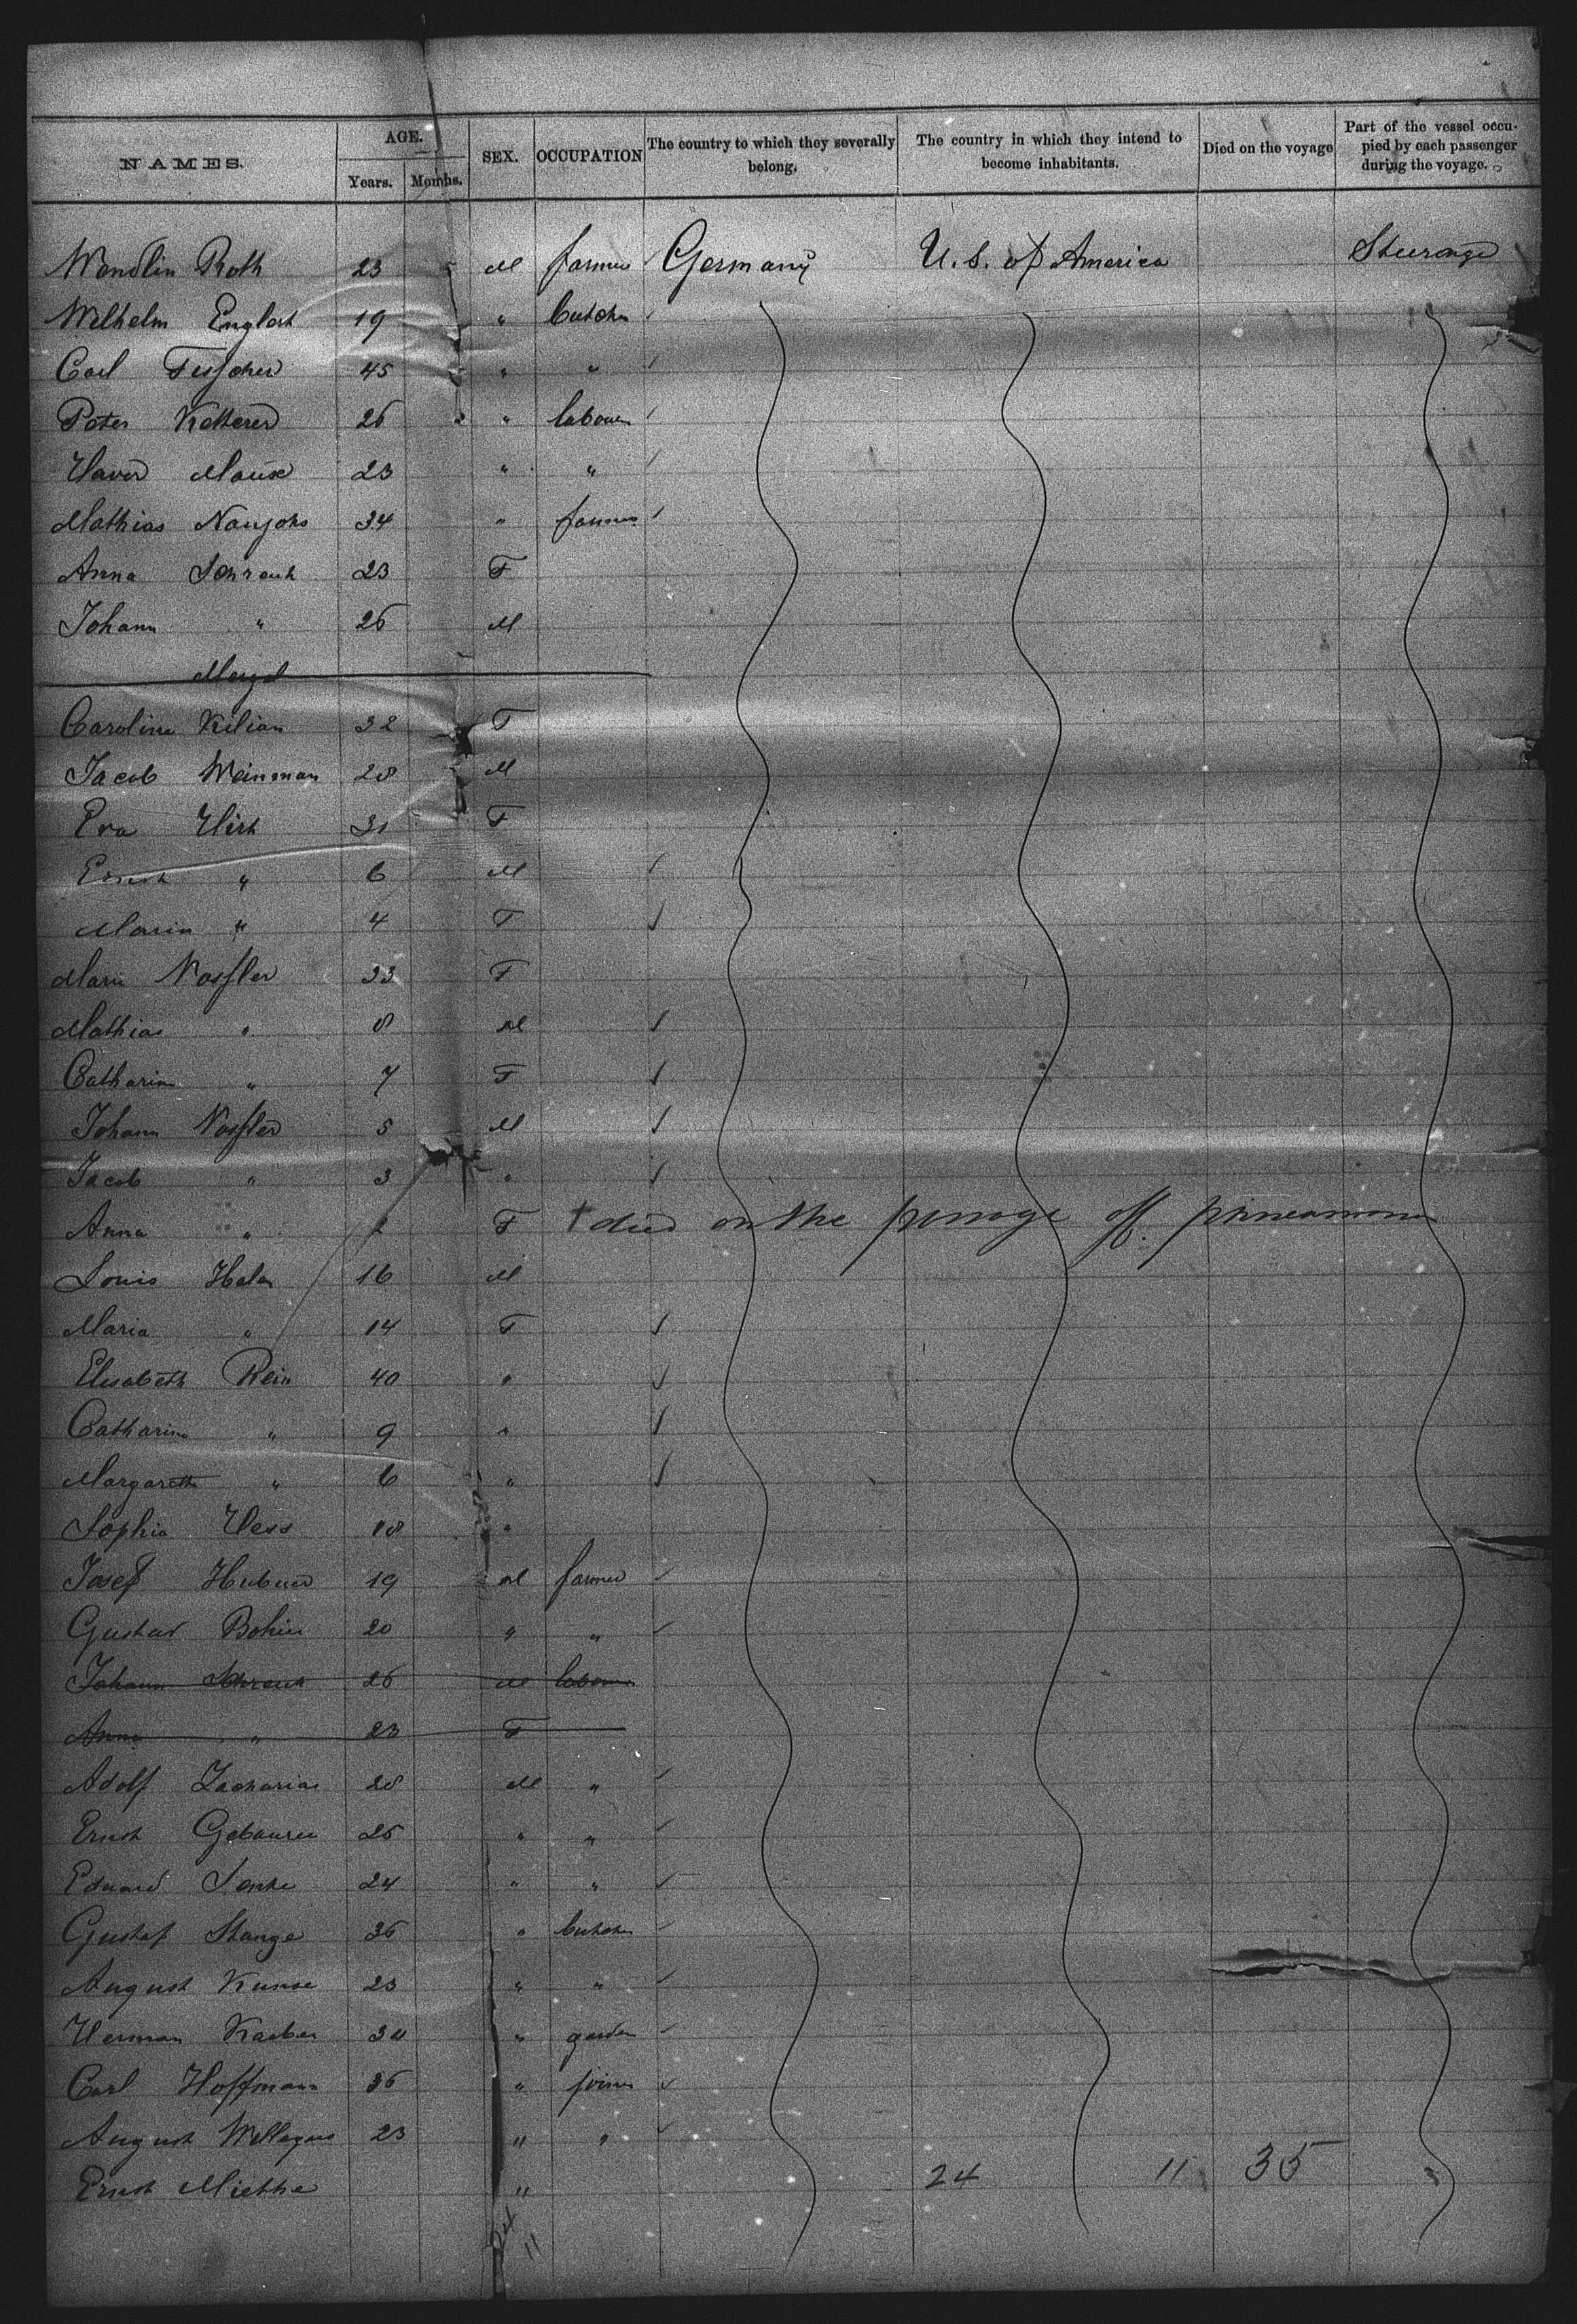 NAMES. AGE. Years. Months. SEX. OCCUPATION The country to which they severally belong. The country in which they intend to become inhabitants. Died on the voyage Part of the vessel occupied by each passenger during the voyage.
Wendlin Roth 23 M farmer Germany U.S. of America Steerage
Wilhelm Englert 19 " butcher
Carl 45 " "
Peter Ketterer 26 " labourer
23 " "
Mathias 34 " farmer
Anna Schrenk 23 F
Johann " 26 M
Caroline Kilian 32 F
Jacob Weinman 28 M
Eva 31 F
Ernst " 6 M
Maria " 4 F
Marie Nossler 33 F
Mathias " 8 M
Catharina " 7 F
Johann Nossler 5 M
Jacob " 3 "
Anna " F † died on the passage of
Louis 16 M
Maria " 14 F
Elisabeth Rein 40 "
Catharina " 9 "
Margareth " 6 "
Sophia Hess 18 "
Josef Hubner 19 M farmer
Gustav 20 " "
Johann Schrenk 26 M labourer
Anna " 23 F
Adolf Zacharias 28 M "
Ernst Gebauer 25 " "
Eduard 24 " "
Gustaf Stange 36 " butcher
August Kunze 23 " "
Herman "
Carl Hoffmann 36 " joiner
August 23 " "
Ernst Miethe " 24 11 35
11